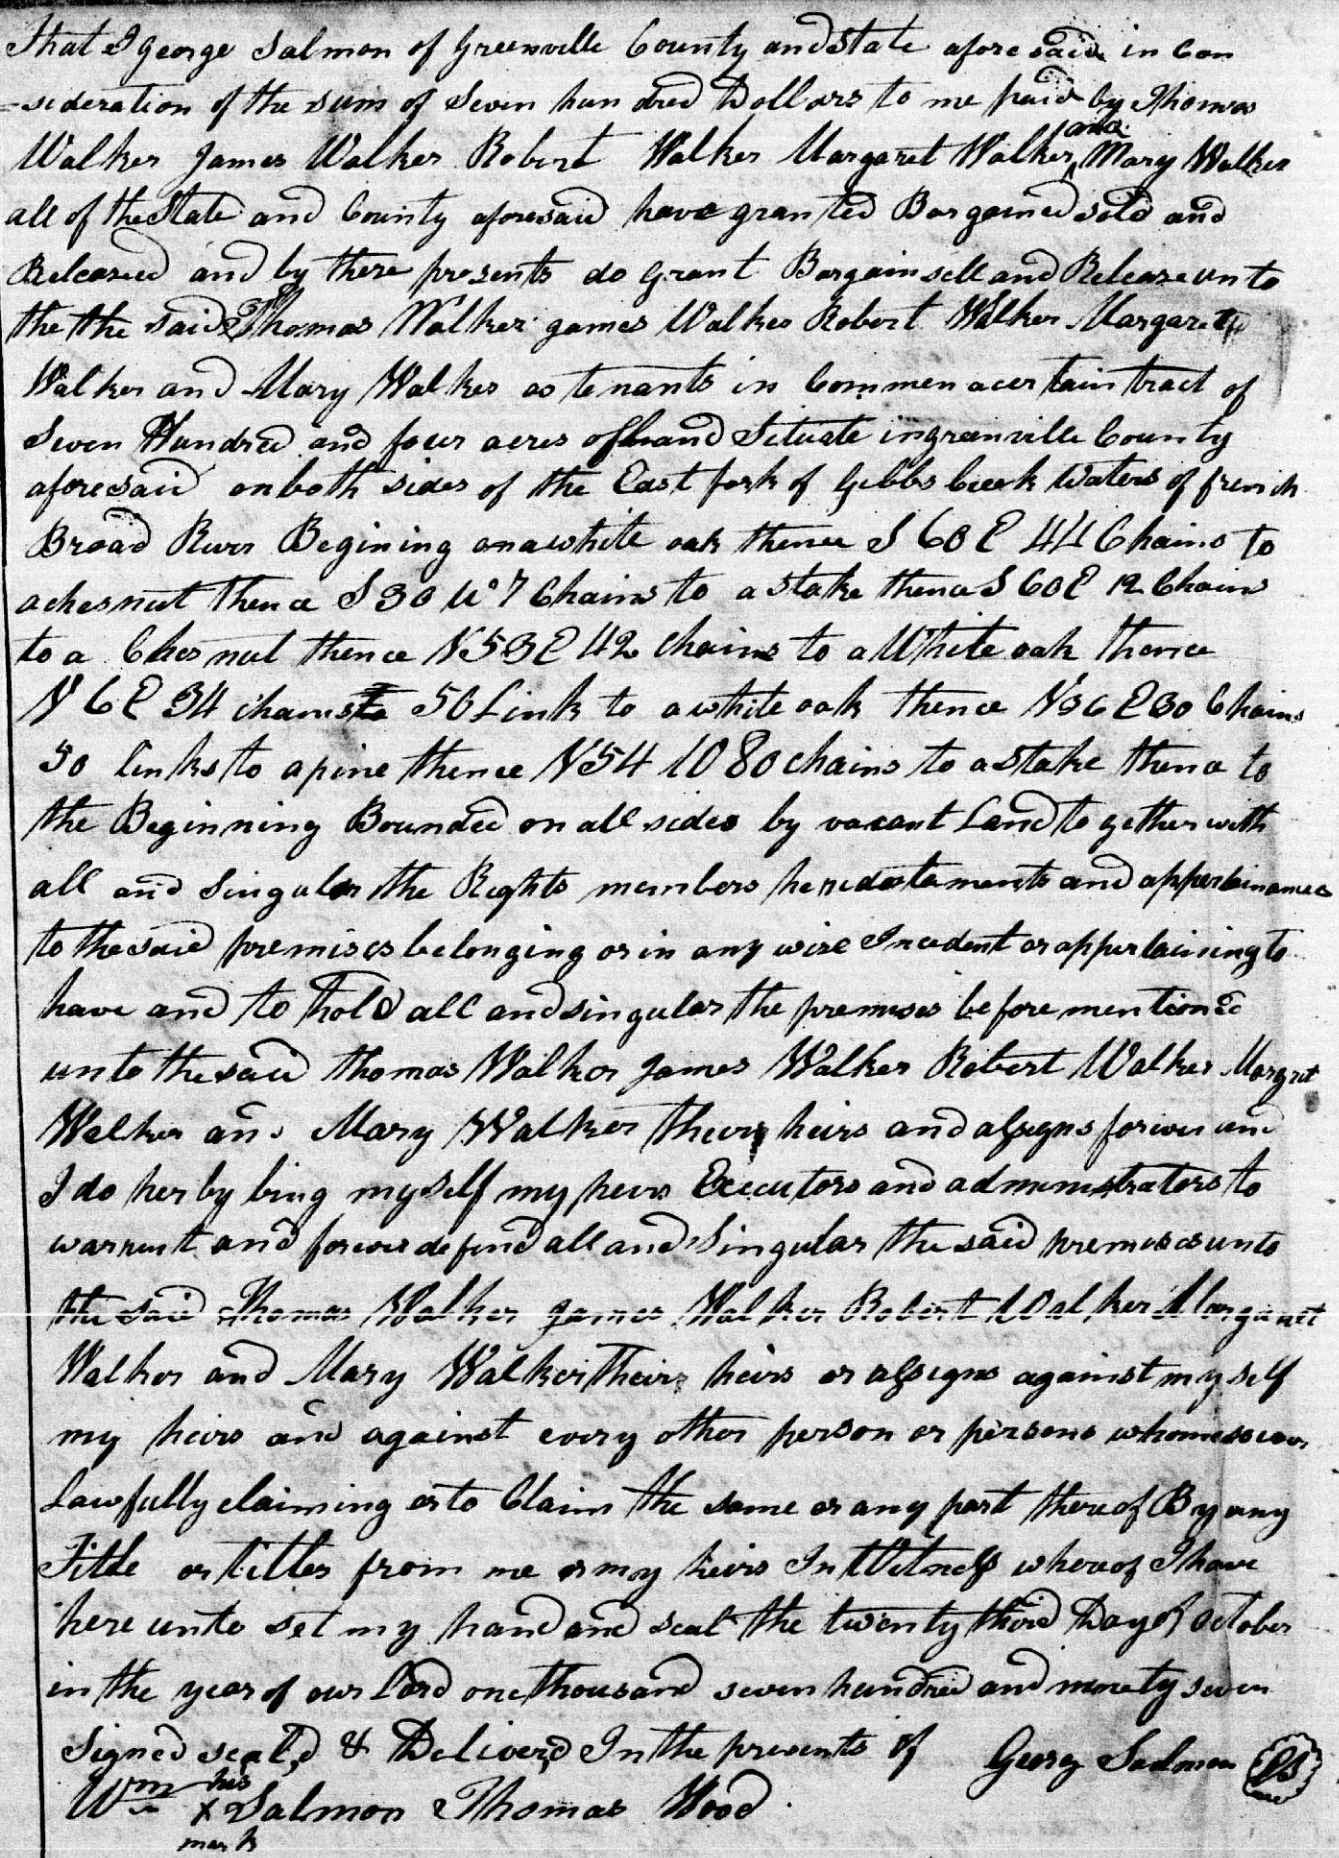 That I George Salmon of Greenville County and State afore said in Con
=sideration of the sum of Seven hundred Dollars to me paid by Thomas
Walker James Walker Robert Walker Margaret Walker and Mary Walker
all of the State and County aforesaid have granted Bargained sold and
Released and by these presents do grant Bargain sell and Release unto
the the said Thomas Walker James Walker Robert Walker Margarett
Walker and Mary Walker as tenants in Commen a certain tract of
Seven Hundred and four acres of land Situate in greenville County
aforesaid on both sides of the East fork of Gebbs Creek Waters of french
Broad River Begining on a white oak thence S 60 E 44 Chains to
a chesnut thence S 30 W 7 Chains to a stake thence S 60 E 12 Chains
to a Chesnut thence N 53 E 42 chains to a White oak thence
N 6 E 34 chains 50 Link to a white oak thence N 36 E 30 Chains
50 links to a pine thence N 54 W 80 chains to a stake thence to
the Beginning Bounded on all sides by vacant Land together with
all and Singular the Rights members heredatements and appertainances
to the said premises belonging or in any wise Incedent or appertaining to
have and to hold all and singular the premises before mentioned
unto the said Thomas Walker James Walker Robert Walker Margret
Walker and Mary Walker their heirs and assigns forever and
I do herby bing myself my heirs Executors and administrators to
warrent and forever defend all and Singular the said premises unto
the said Thomas Walker James Walker Robert Walker Margaret
Walker and Mary Walker Their heirs or assigns against my self
my heirs and against every other person or persons whomesoever
Lawfully claiming or to Claim the same or any part thereof By any
Title or titles from me or my heirs In Witness whereof I have
here unto set my hand and seal the twenty third Day of October
in the year of our Lord one thousand seven hundred and ninety seven
Signed seal,d & Deliver,d In the presents of Georg Salmon LS
Wm his x Salmon Thomas Wood
mark